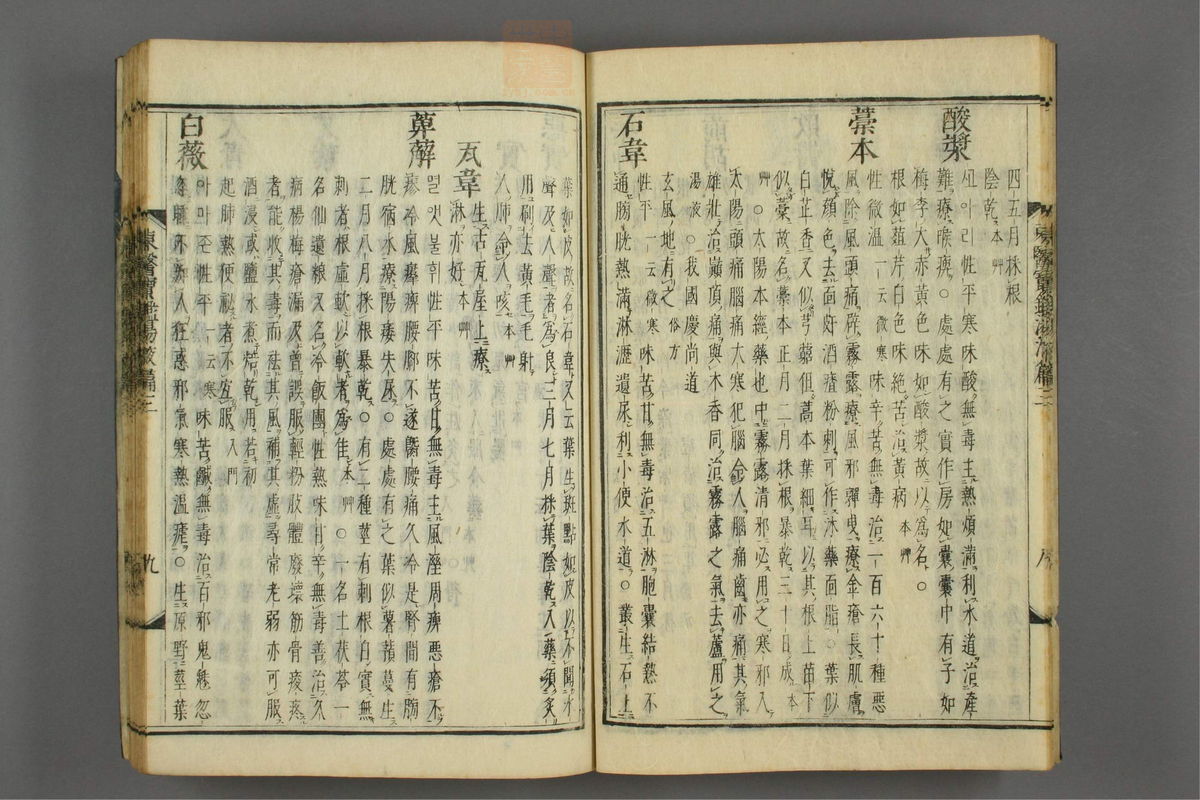 四五月採根
陰乾 本艸
酸漿 ᄭᅪ아리 性平寒味酸無毒主熱煩滿利水道治産
難療喉痺○處處有之實作房如囊囊中有子如
梅李大赤黃色味如酸漿故以爲名○
根如菹芹白色味絶苦治黃病 本艸
藁本 性微溫一云微寒味辛苦無毒治一百六十種惡
風除風頭痛辟霧露療風邪嚲曳療金瘡長肌膚
悅顔色去面皯酒齄粉刺可作沐藥面脂○葉似
白芷香又似芎藭但藁本葉細耳以其根上苗下
似藁故名藁本正月二月採根暴乾三十日成 本
艸○太陽本經藥也中霧露淸邪必用之寒邪入
太陽頭痛腦痛大寒犯腦令人腦痛齒亦痛其氣
雄壯治巓頂痛與木香同治霧露之氣去蘆用之
湯液○我國慶尙道
玄風地有之 俗方
石韋 性平一云微寒味苦甘無毒治五淋胞囊結熱不
通膀胱熱滿淋瀝遺尿利小便水道○叢生石上
葉如皮故名石韋又云葉生斑點如皮以不聞水
聲及人聲者爲良二月七月採葉陰乾入藥須炙
用刷去黃毛毛射
人肺令人咳 本艸
瓦韋 生古瓦屋上療
淋亦好 本艸
萆薢 멸앳불휘 性平味苦甘無毒主風濕周痺惡瘡不
瘳冷風㿏痺腰脚不遂腰痛久冷是腎間有膀
胱宿水療陽痿失尿○處處有之葉似薯蕷蔓生
二月八月採根暴乾○有二種莖有刺根白實無
刺者根虛軟以軟者爲佳 本艸○一名土茯苓一
名仙遺粮又名冷飯團性熱味甘辛無毒善治久
病楊梅瘡漏及曾誤服輕粉肢體廢壞筋骨痠疼
者能收其毒而祛其風補其虛尋常老弱亦可服
酒浸或鹽水煮焙乾用若初
起肺熱便祕者不宜服 入門
白薇 아마존 性平一云寒味苦鹹無毒治百邪鬼魅忽
忽睡不知人狂惑邪氣寒熱溫瘧○生原野莖葉
東醫寶鑑湯液篇三
九